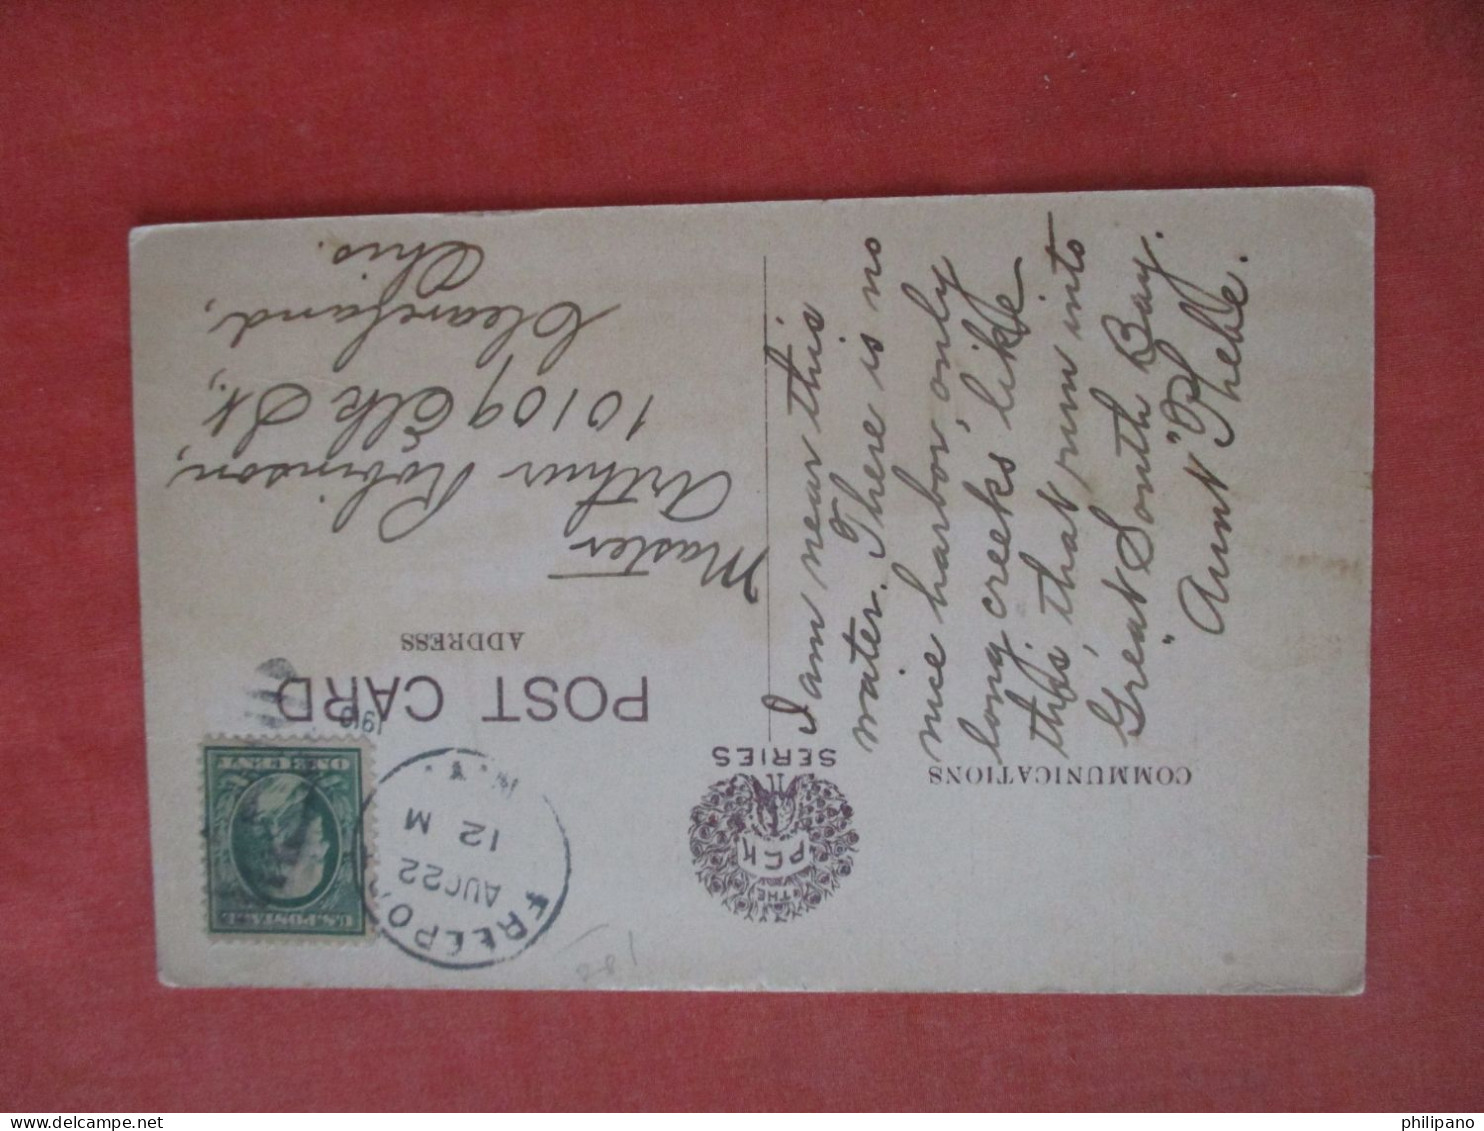 THE
PCK
SERIES
POST CARD
ADDRESS
COMMUNICATIONS
FREEPO
AUG 22
12 M
N.Y.
191
U.S. POSTAGE
ONE CENT
Master
Arthur Robinson,
10109 Elk St.,
Cleaveland,
Ohio.
I am near this
water. There is no
nice harbor, only
long creeks like
this, that run into
Great South Bay.
"Aunt Phebe."
281
philipano